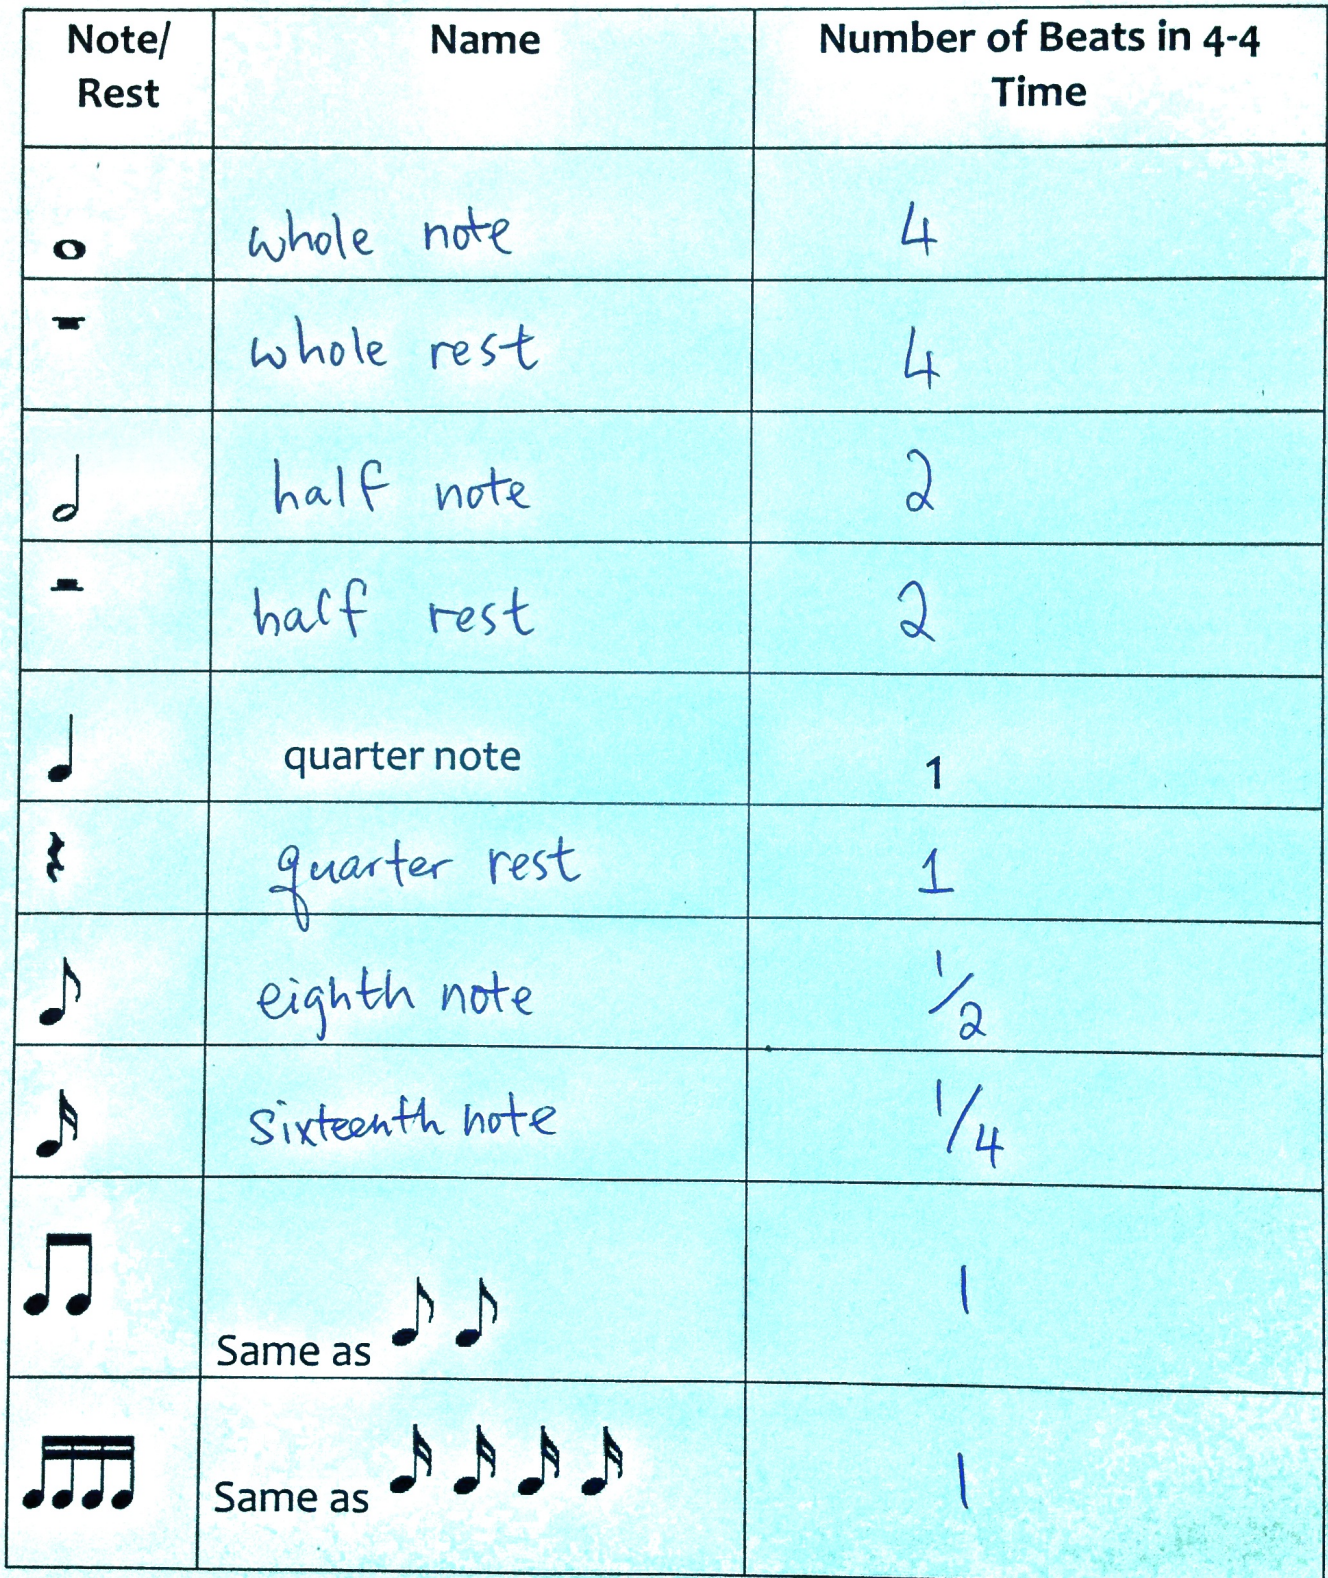 Note/ Name Number of Beats in 4-4
Rest Time
whole note 4
whole rest 4
half note 2
half rest 2
quarter note 1
quarter rest 1
eighth note 1/2
sixteenth note 1/4
Same as 1
Same as 1